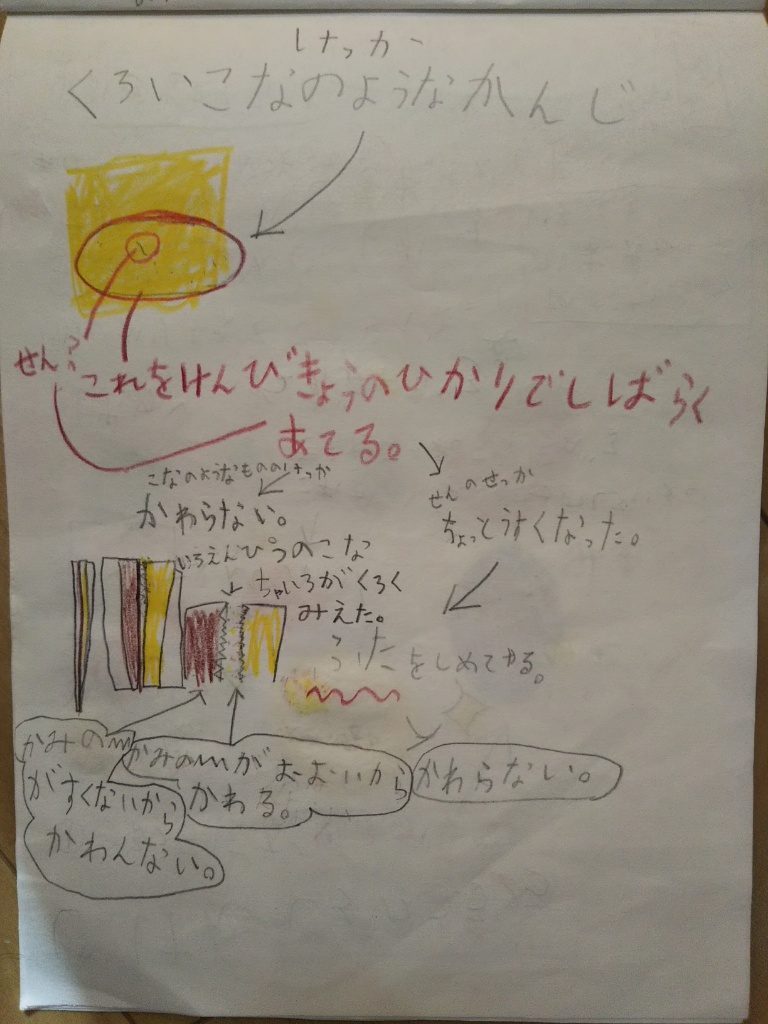 けっかー
くろいこなのようなかんじ
せん?
これをけんびきょうのひかりでしばらく
あてる。
こなのようなもののけっか
かわらない。
せんのせっか
ちょっとうすくなった。
いろえんぴつのこな
ちゃいろがくろく
みえた。
をしめてみる。
かみの
がすくないから
かわんない。
かみの
がおおいから
かわる。
かわらない。